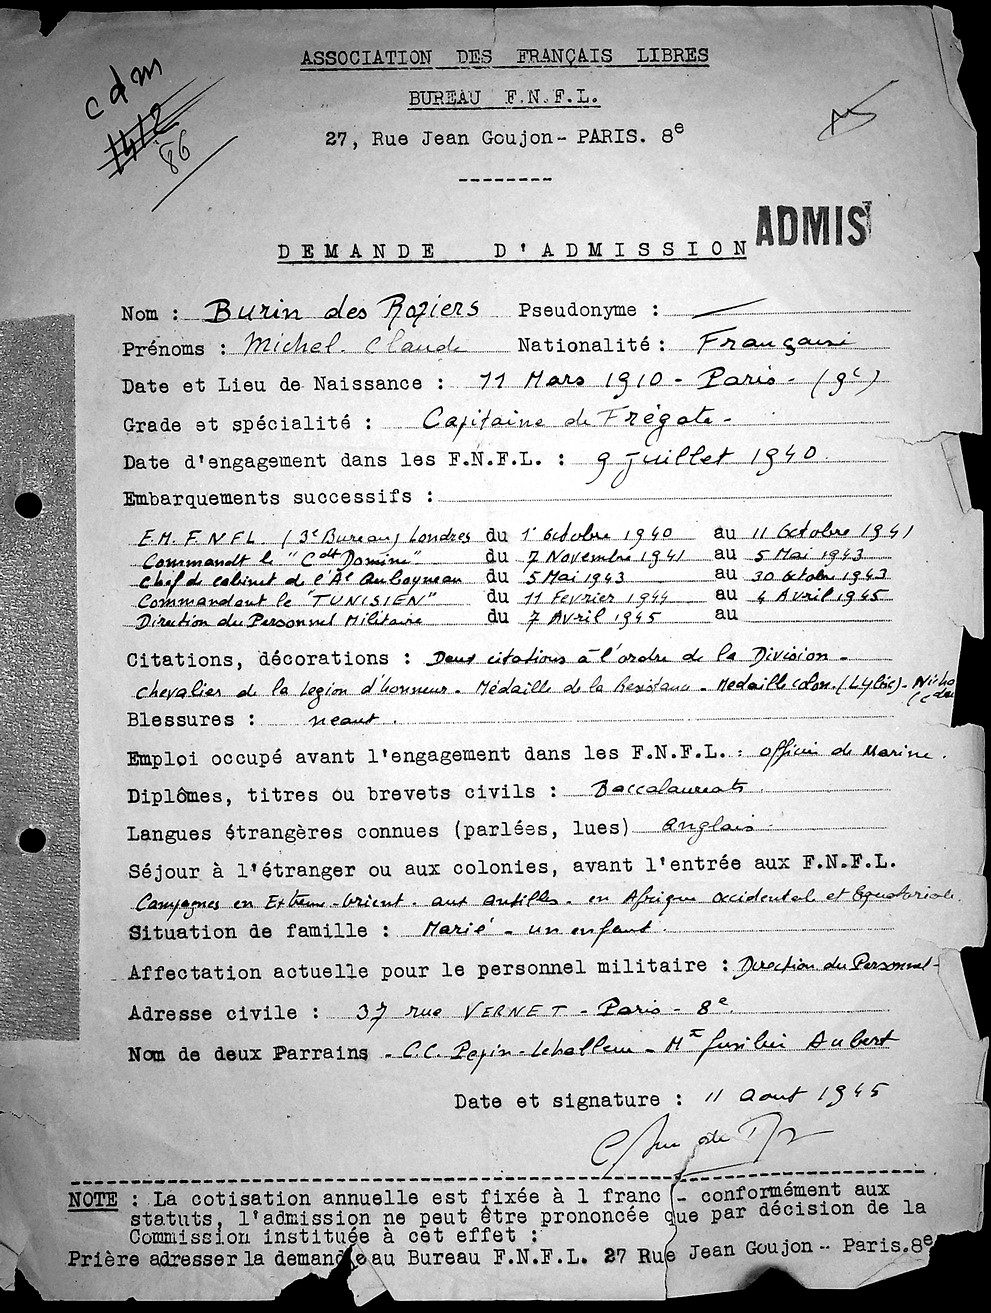 ASSOCIATION DES FRANÇAIS LIBRES
BUREAU F.N.F.L.
27, Rue Jean Goujon- PARIS. 8e
cdm
1412
86
ADMIS
DEMANDE D'ADMISSION
Nom : Burin des Roziers Pseudonyme :
Prénoms : Michel. Claude Nationalité : Française
Date et Lieu de Naissance : 11 Mars 1910 - Paris - (9e)
Grade et spécialité : Capitaine de Frégate -
Date d'engagement dans les F.N.F.L. : 9 juillet 1940
Embarquements successifs :
E.M. F.N.F.L. (3e Bureau) Londres du 1er Octobre 1940 au 11 Octobre 1941
Commandt le "Cdt Domine" du 7 Novembre 1941 au 5 Mai 1943
Chef de cabinet de l'Al Auboyneau du 5 Mai 1943 au 30 Octobre 1943
Commandant le "TUNISIEN" du 11 Fevrier 1944 au 4 Avril 1945
Direction du Personnel Militaire du 7 Avril 1945 au
Citations, décorations : Deux citations à l'ordre de la Division -
Chevalier de la Legion d'honneur - Médaille de la Resistance - Medaille Colon. (Lybie) -
Blessures : neant.
Emploi occupé avant l'engagement dans les F.N.F.L. : Officier de Marine.
Diplômes, titres ou brevets civils : Baccalaureats
Langues étrangères connues (parlées, lues) anglais
Séjour à l'étranger ou aux colonies, avant l'entrée aux F.N.F.L.
Campagnes en Extreme-Orient - aux antilles - en Afrique occidentale et Equatoriale.
Situation de famille : Marié - un enfant.
Affectation actuelle pour le personnel militaire : Direction du Personnel -
Adresse civile : 37 rue VERNET - Paris - 8e
Nom de deux Parrains - C.C. Pepin-Lehalleur - Me fusilier Aubert
Date et signature : 11 aout 1945
NOTE : La cotisation annuelle est fixée à 1 franc - conformément aux
statuts, l'admission ne peut être prononcée que par décision de la
Commission instituée à cet effet :
Prière adresser la demande au Bureau F.N.F.L. 27 Rue Jean Goujon - Paris.8e